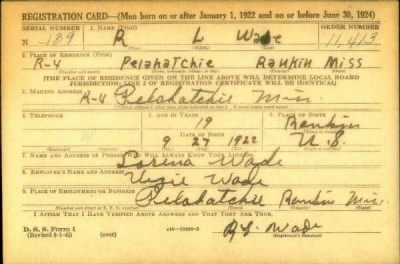 REGISTRATION CARD—(Men born on or after January 1, 1922 and on or before June 30, 1924)
SERIAL NUMBER 1. NAME (Print) ORDER NUMBER
N- 189 R L Wade 11,413
(First) (Middle) (Last)
2. PLACE OF RESIDENCE (Print)
R-4 Pelahatchie Rankin Miss
(Number and street) (Town, township, village, or city) (County) (State)
[THE PLACE OF RESIDENCE GIVEN ON THE LINE ABOVE WILL DETERMINE LOCAL BOARD
JURISDICTION; LINE 2 OF REGISTRATION CERTIFICATE WILL BE IDENTICAL]
3. MAILING ADDRESS
R-4 Pelahatchie Miss.
4. TELEPHONE 5. AGE IN YEARS 6. PLACE OF BIRTH
19 Rankin
DATE OF BIRTH
9 27 1922 U.S.
7. NAME AND ADDRESS OF PERSON WHO WILL ALWAYS KNOW YOUR ADDRESS
Wade
8. EMPLOYER'S NAME AND ADDRESS
Wade
9. PLACE OF EMPLOYMENT OR BUSINESS
Pelahatchie Rankin Miss.
I AFFIRM THAT I HAVE VERIFIED ABOVE ANSWERS AND THAT THEY ARE TRUE.
D. S. S. Form 1
(Revised 6-1-42) (over)
R L Wade
(Registrant's signature)